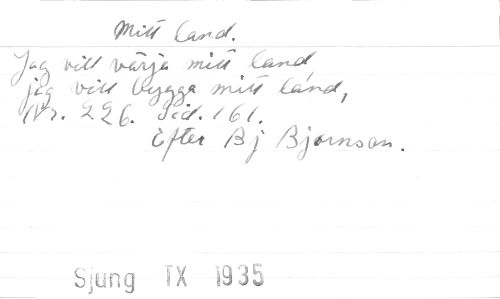 Mitt land.
Jag vill värja mitt land
jag vill bygga mitt land,
Nr. 226. Sid. 161.
Efter Bj Bjornson.
Sjung TX 1935